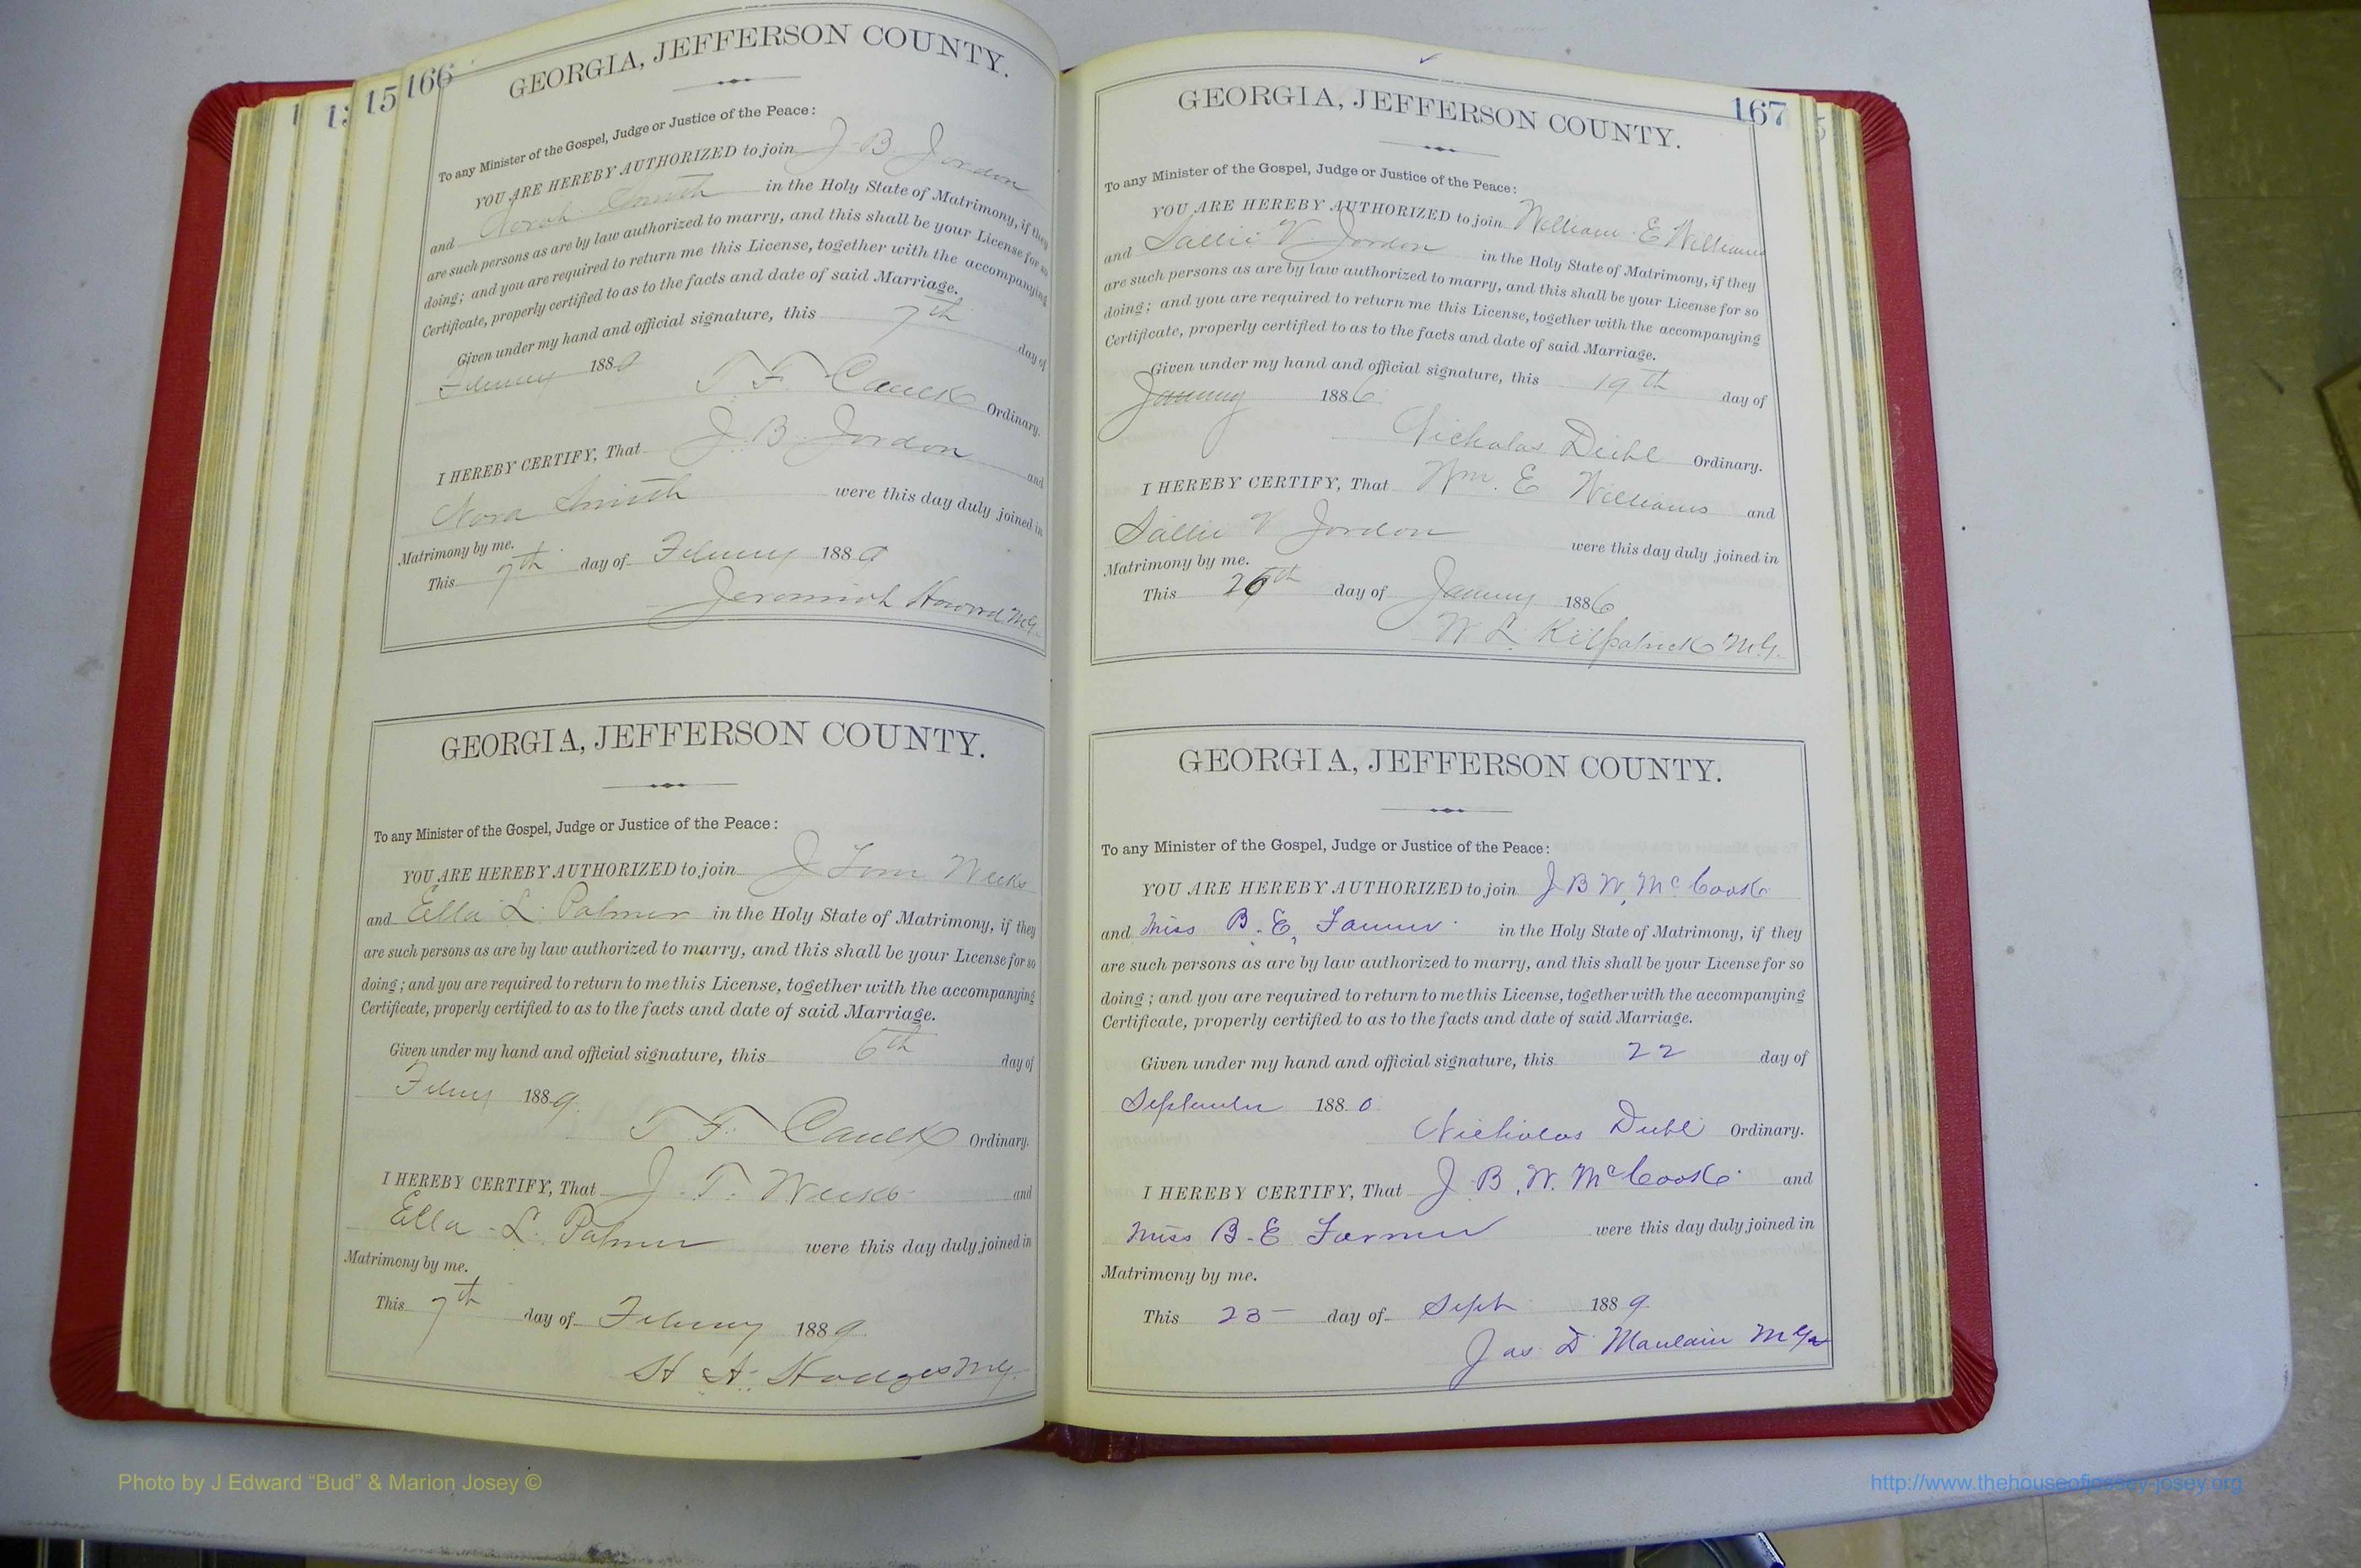 166
GEORGIA, JEFFERSON COUNTY.
To any Minister of the Gospel, Judge or Justice of the Peace:
YOU ARE HEREBY AUTHORIZED to join J B Jordon
and Norah Smith in the Holy State of Matrimony, if they
are such persons as are by law authorized to marry, and this shall be your License for so
doing; and you are required to return me this License, together with the accompanying
Certificate, properly certified to as to the facts and date of said Marriage.
Given under my hand and official signature, this 7th day of
February 1889
T. F. Caulk Ordinary.
I HEREBY CERTIFY, That J. B. Jordon and
Nora Smith were this day duly joined in
Matrimony by me.
This 7th day of February 1889
Jeremiah Howard M.G.
GEORGIA, JEFFERSON COUNTY.
To any Minister of the Gospel, Judge or Justice of the Peace:
YOU ARE HEREBY AUTHORIZED to join J Tom Weeks
and Ella L. Palmer in the Holy State of Matrimony, if they
are such persons as are by law authorized to marry, and this shall be your License for so
doing; and you are required to return to me this License, together with the accompanying
Certificate, properly certified to as to the facts and date of said Marriage.
Given under my hand and official signature, this 6th day of
1889
T. F. Caulk Ordinary.
I HEREBY CERTIFY, That J. T. Weeks and
Ella L. Palmer were this day duly joined in
Matrimony by me.
This 7th day of February 1889
H. A. Hodges M.G.
167
GEORGIA, JEFFERSON COUNTY.
To any Minister of the Gospel, Judge or Justice of the Peace:
YOU ARE HEREBY AUTHORIZED to join William E Williams
and Sallie V Jordon in the Holy State of Matrimony, if they
are such persons as are by law authorized to marry, and this shall be your License for so
doing; and you are required to return me this License, together with the accompanying
Certificate, properly certified to as to the facts and date of said Marriage.
Given under my hand and official signature, this 19th day of
January 1886
Nicholas Diehl Ordinary.
I HEREBY CERTIFY, That Wm. E Williams and
Sallie V Jordon were this day duly joined in
Matrimony by me.
This 26th day of January 1886
W. L. Kilpatrick M.G.
GEORGIA, JEFFERSON COUNTY.
To any Minister of the Gospel, Judge or Justice of the Peace:
YOU ARE HEREBY AUTHORIZED to join J B W, McCook
and Miss B. E, Farmer in the Holy State of Matrimony, if they
are such persons as are by law authorized to marry, and this shall be your License for so
doing; and you are required to return to me this License, together with the accompanying
Certificate, properly certified to as to the facts and date of said Marriage.
Given under my hand and official signature, this 22 day of
September 1880
Nicholas Diehl Ordinary.
I HEREBY CERTIFY, That J. B. W. McCook and
Miss B. E Farmer were this day duly joined in
Matrimony by me.
This 23 day of Sept 1889
Jas D
Photo by J Edward “Bud” & Marion Josey ©
http://www.thehouseofjossey-josey.org